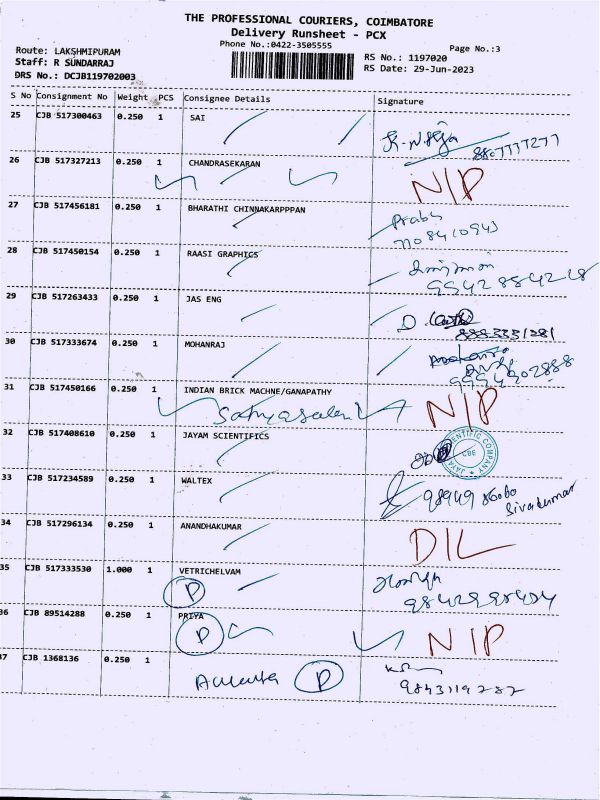 THE PROFESSIONAL COURIERS, COIMBATORE
Delivery Runsheet - PCX
Phone No.:0422-3505555
Page No.:3
Route: LAKSHMIPURAM
Staff: R SUNDARRAJ
DRS No.: DCJB119702003
RS No.: 1197020
RS Date: 29-Jun-2023
S No Consignment No Weight PCS Consignee Details Signature
25 CJB 517300463 0.250 1 SAI
8807737277
26 CJB 517327213 0.250 1 CHANDRASEKARAN N/P
27 CJB 517456181 0.250 1 BHARATHI CHINNAKARPPPAN Prabu
7708410943
28 CJB 517450154 0.250 1 RAASI GRAPHICS
9942884228
29 CJB 517263433 0.250 1 JAS ENG D
30 CJB 517333674 0.250 1 MOHANRAJ
9994902888
31 CJB 517450166 0.250 1 INDIAN BRICK MACHNE/GANAPATHY N/P
32 CJB 517408610 0.250 1 JAYAM SCIENTIFICS
CBE
33 CJB 517234589 0.250 1 WALTEX
Sivakumar
34 CJB 517296134 0.250 1 ANANDHAKUMAR D/L
35 CJB 517333530 1.000 1 VETRICHELVAM
P
36 CJB 89514288 0.250 1 PRIYA N/P
P
37 CJB 1368136 0.250 1 P
9843119282